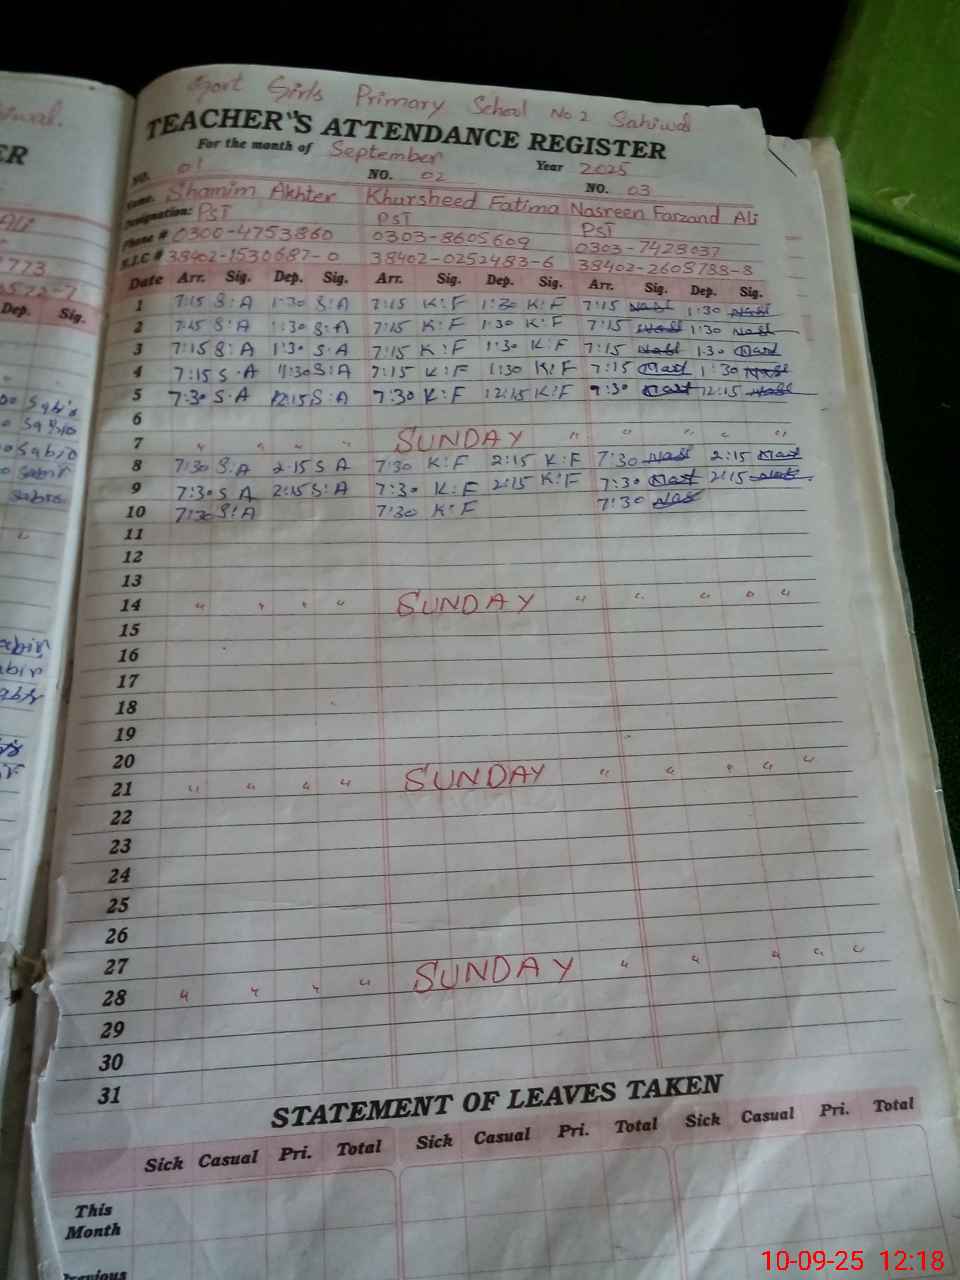 Govt Girls Primary School No 2 Sahiwal
TEACHER'S ATTENDANCE REGISTER
For the month of September Year 2025
NO. 01 NO. 02 NO. 03
Name. Shamim Akhter Khursheed Fatima Nasreen Farzand Ali
Designation: PST PST PST
Phone # 0300-4753860 0303-8605609 0303-7428037
N.I.C # 38402-1530687-0 38402-0252483-6 38402-2608788-8
Date Arr. Sig. Dep. Sig. Arr. Sig. Dep. Sig. Arr. Sig. Dep. Sig.
1 7:15 S:A 1:30 S:A 7:15 K:F 1:30 K:F 7:15 1:30
2 7:15 S:A 1:30 S:A 7:15 K:F 1:30 K:F 7:15 1:30
3 7:15 S:A 1:30 S.A 7:15 K:F 1:30 K:F 7:15 1:30
4 7:15 S.A 1:30 S:A 7:15 K:F 1:30 K:F 7:15 1:30
5 7:30 S.A 12:15 S:A 7:30 K:F 12:15 K:F 7:30 12:15
6
7 " " " " SUNDAY " " " " "
8 7:30 S:A 2:15 S A 7:30 K:F 2:15 K:F 7:30 2:15
9 7:30 S A 2:15 S:A 7:30 K:F 2:15 K:F 7:30 2:15
10 7:30 S:A 7:30 K:F 7:30
11
12
13
14 " " " " SUNDAY " " " " "
15
16
17
18
19
20
21 " " " " SUNDAY " " " " "
22
23
24
25
26
27
28 " " " " SUNDAY " " " " "
29
30
31
STATEMENT OF LEAVES TAKEN
Sick Casual Pri. Total Sick Casual Pri. Total Sick Casual Pri. Total
This
Month
Previous
10-09-25 12:18